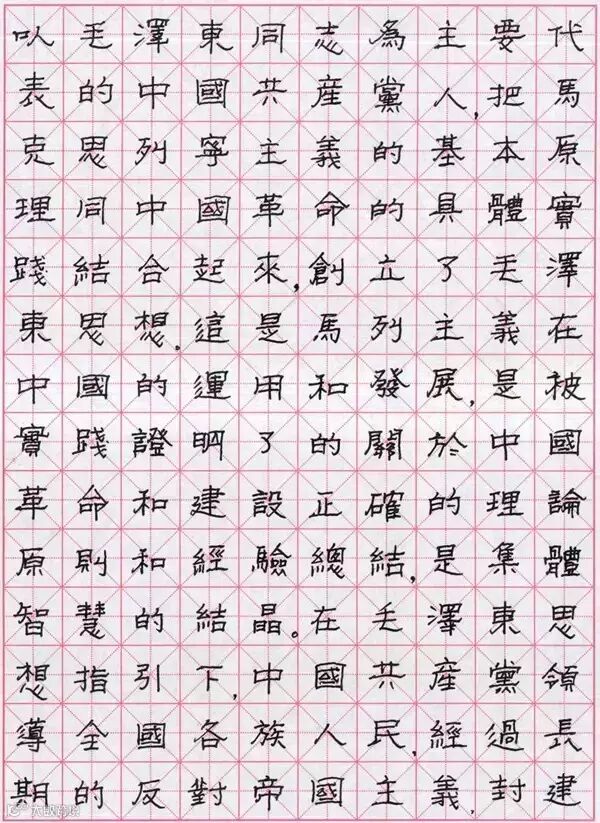 以毛澤東同志為主要代
表的中國共産黨人,把馬
克思列寧主義的基本原
理同中國革命的具體實
踐結合起來,創立了毛澤
東思想.這是馬列主義在
中國的運用和發展,是被
實踐證明了的關於中國
革命和建設正確的理論
原則和經驗總結,是集體
智慧的結晶。在毛澤東思
想指引下,中國共産黨領
導全國各族人民,經過長
期的反對帝國主義,封建